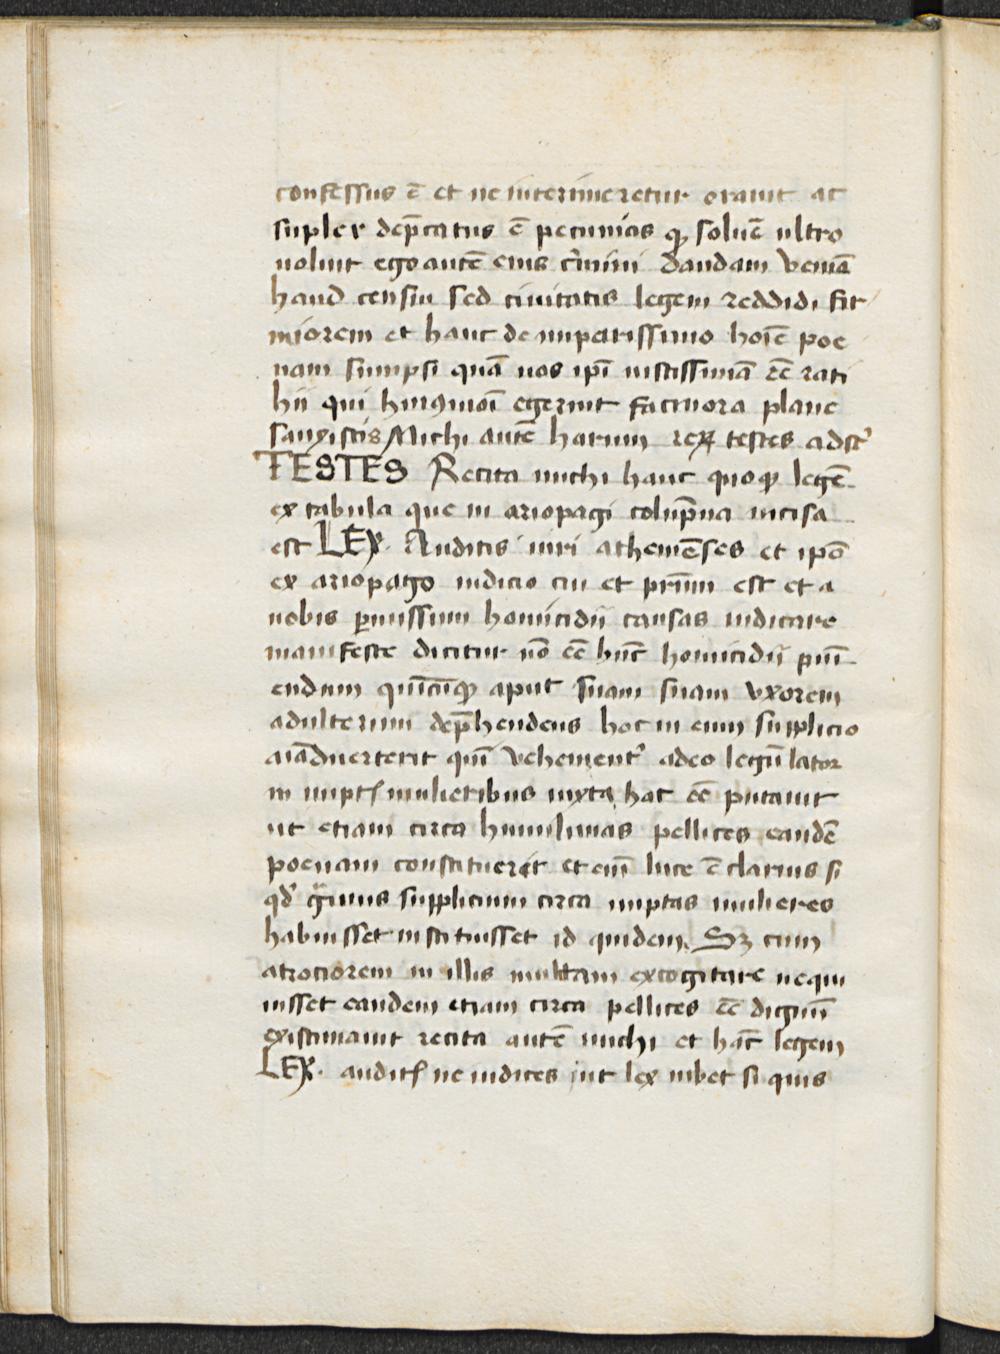 confessus ē et ne interimeretur orauit ac
suplex dep̄catus ē pecunias qꝫ soluē ultro
uoluit ego autē eius cͥmini dandam veniā
haud censui sed ciuitatis legem reddidi fir
miorem et hanc de imparissimo hoīe poe
nam sumpsi quā uos ip̄i iustissimā eē rati
hii qui huiꝰmōi egerint facinora plane
sanxistis Michi autē harum reꝝ testes adst᾽
TESTES Recita michi hanc quoqꝫ legē
ex tabula que in ariopagi colup̄na incisa
est LEX. Auditis uiri athenienses et ip̄o
ex ariopago iudicio cui et pr̄ium est et a
nobis ꝑmissum homicidii causas iudicare
manifeste dicitur nō eē hūc homicidii puī
endum quicūqꝫ aput suam suam vxorem
adulterum dep̄hendens hoc in eum supplicio
aīaduerterit quī vehement᾽ adeo legū lator
in nupt̄ mulieribus iuxta hac eē putauit
ut etiam circa humilimas pellices eandē
poenam constituerit et enī luce ē clarius si
qd̄ gͣuius supplicium circa nuptas mulieres
habuisset instituisset id quidem. Sꝫ cum
atrociorem in illis multam excogitare nequi
uisset eandem etiam circa pellices eē dignū
existimauit recita autē michi et hāc legem
LEX. audit̄ ne iudices ut lex iubet si quis